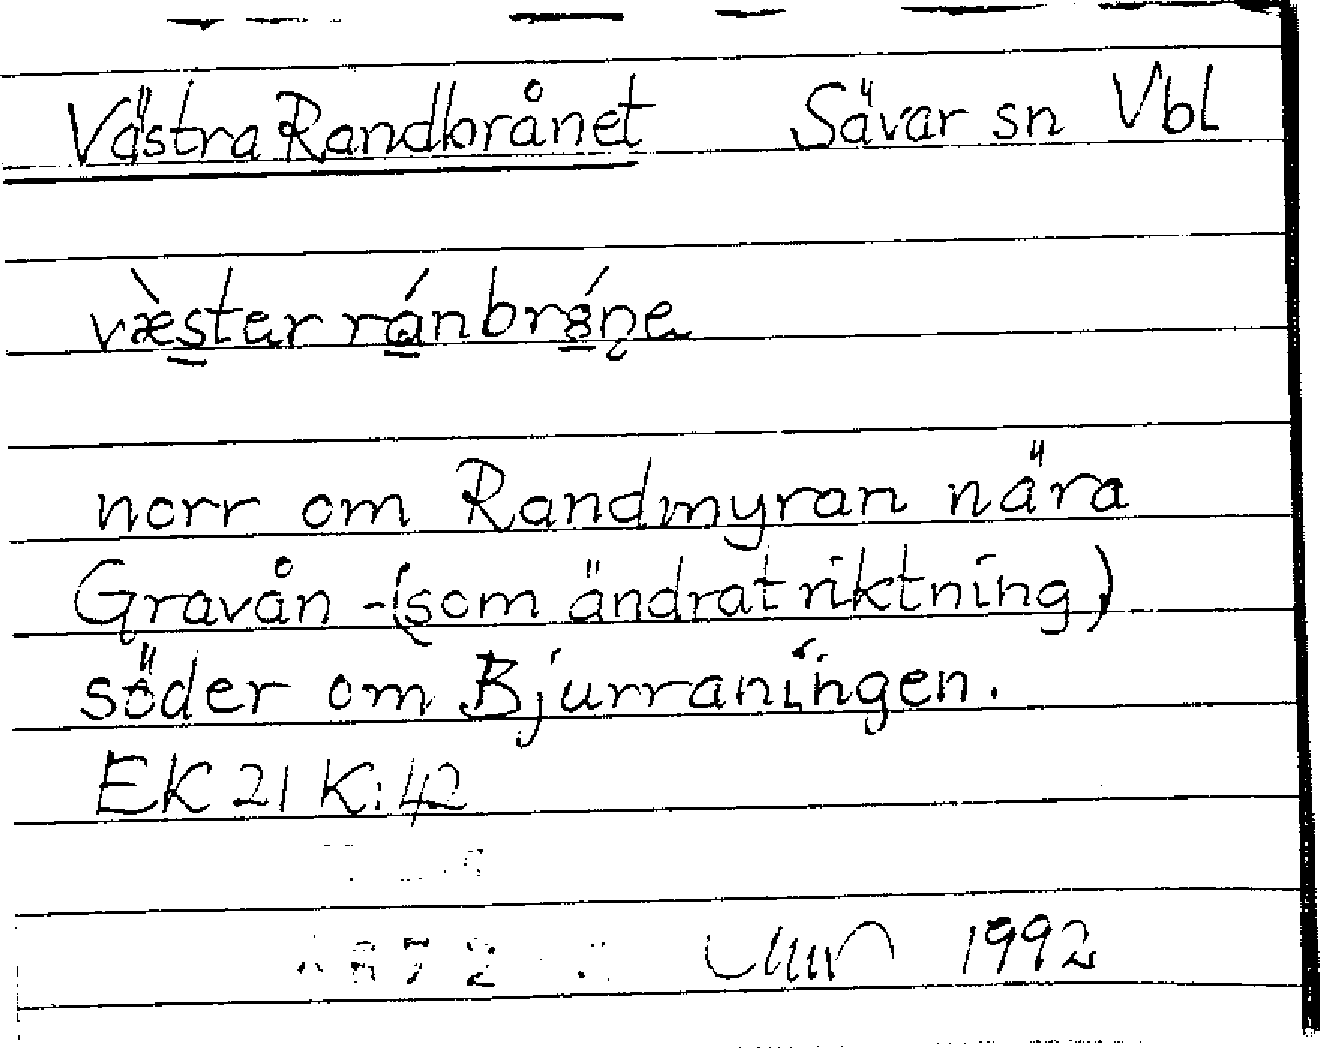 Västra Randbrånet Sävar sn Vbl
væ̀ster ránbrǻne
norr om Randmyran nära
Gravån - (som ändrat riktning)
söder om Bjurraningen.
EK 21 K:42
1992